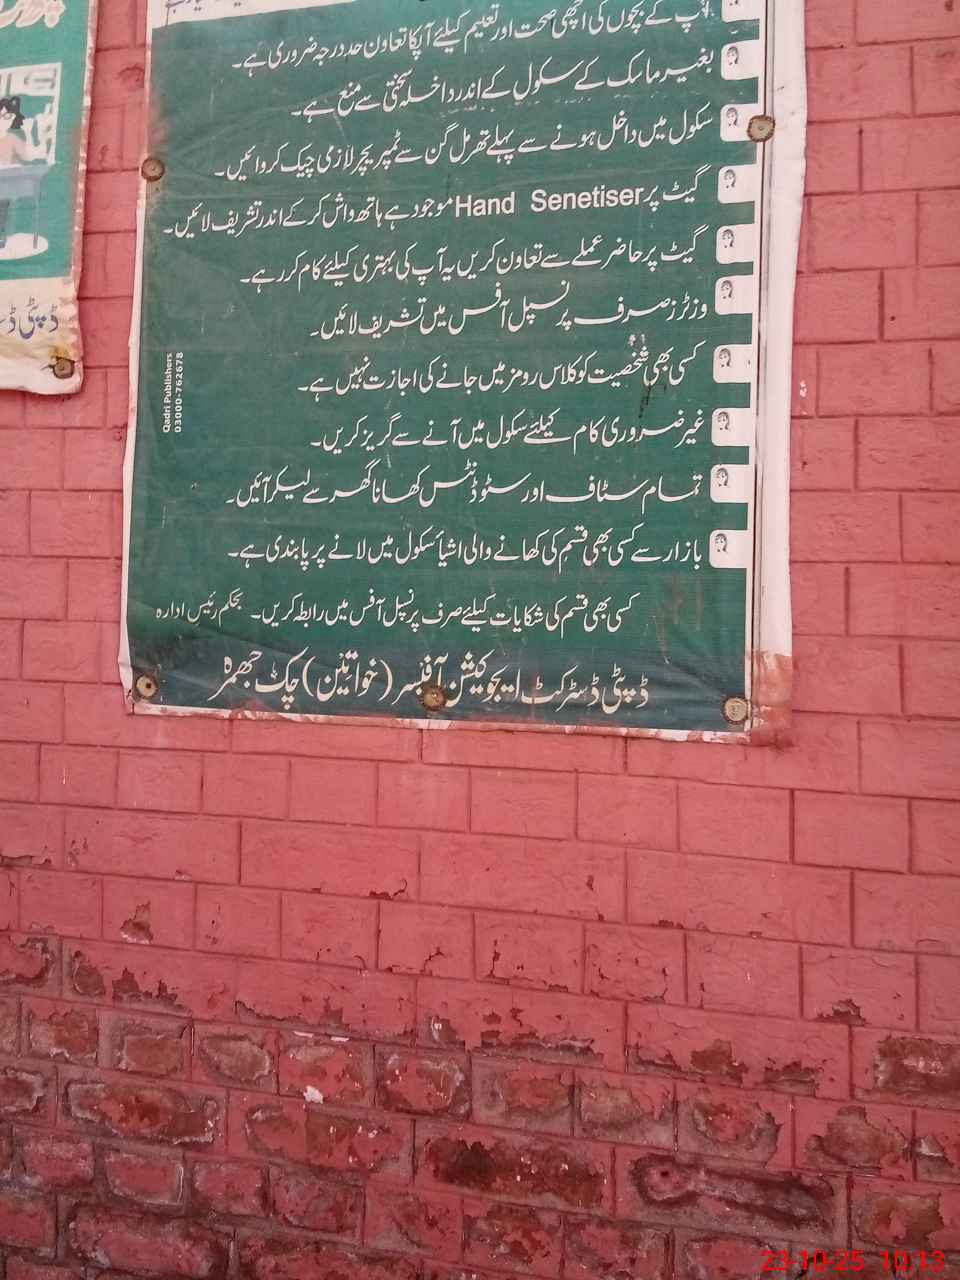 آپ کے بچوں کی اچھی صحت اور تعلیم کیلئے آپکا تعاون حد درجہ ضروری ہے۔
بغیر ماسک کے سکول کے اندر داخلہ سختی سے منع ہے۔
سکول میں داخل ہونے سے پہلے تھرمل گن سے ٹمپریچر لازمی چیک کروائیں۔
گیٹ پر Hand Senetiser موجود ہے ہاتھ واش کر کے اندر تشریف لائیں۔
گیٹ پر حاضر عملے سے تعاون کریں یہ آپ کی بہتری کیلئے کام کر رہے۔
وزٹرز صرف پرنسپل آفس میں تشریف لائیں۔
کسی بھی شخصیت کو کلاس رومز میں جانے کی اجازت نہیں ہے۔
غیر ضروری کام کیلئے سکول میں آنے سے گریز کریں۔
تمام سٹاف اور سٹوڈنٹس کھانا گھر سے لیکر آئیں۔
بازار سے کسی بھی قسم کی کھانے والی اشیائ سکول میں لانے پر پابندی ہے۔
کسی بھی قسم کی شکایات کیلئے صرف پرنسپل آفس میں رابطہ کریں۔ بحکم رئیس ادارہ
ڈپٹی ڈسٹرکٹ ایجوکیشن آفیسر (خواتین) چک جھمرہ
Qadri Publishers
03000-762678
ڈپٹی
23-10-25 10:13